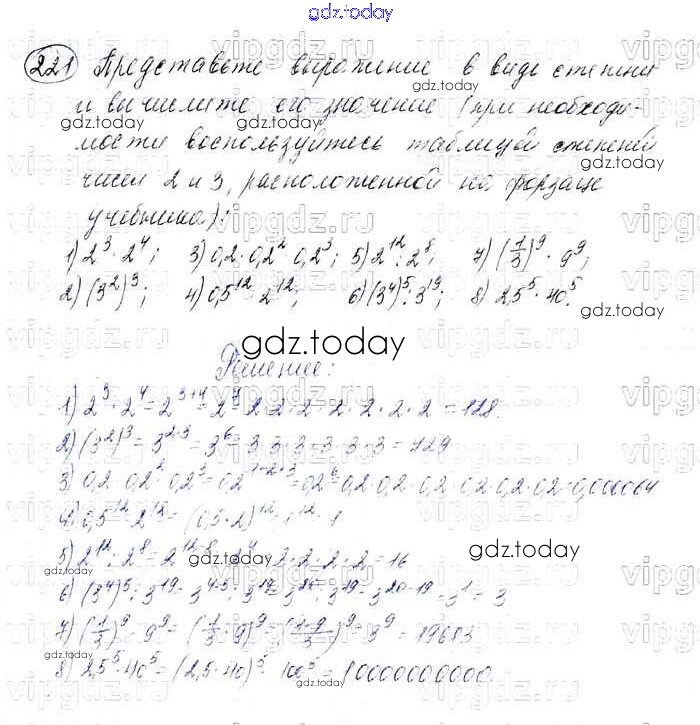 gdz.today
221 Представьте выражение в виде степени
и вычислите его значение (при необходи-
мости воспользуйтесь таблицей степеней
чисел 2 и 3, расположенной на форзаце
учебника):
1) 2³ · 2⁴; 3) 0,2 · 0,2² · 0,2³; 5) 2¹² : 2⁸; 7) (1/3)⁹ · 9⁹;
2) (3²)³; 4) 0,5¹² · 2¹²; 6) (3⁴)⁵ : 3¹⁹; 8) 2,5⁵ · 40⁵.
gdz.today
Решение:
1) 2³ · 2⁴ = 2³⁺⁴ = 2⁷ = 2 · 2 · 2 · 2 · 2 · 2 · 2 = 128.
2) (3²)³ = 3²·³ = 3⁶ = 3 · 3 · 3 · 3 · 3 · 3 = 729
3) 0,2 · 0,2² · 0,2³ = 0,2¹⁺²⁺³ = 0,2⁶ = 0,2 · 0,2 · 0,2 · 0,2 · 0,2 · 0,2 = 0,000064
4) 0,5¹² · 2¹² = (0,5 · 2)¹² = 1¹² = 1
5) 2¹² : 2⁸ = 2¹²⁻⁸ = 2⁴ = 2 · 2 · 2 · 2 = 16
6) (3⁴)⁵ : 3¹⁹ = 3⁴·⁵ : 3¹⁹ = 3²⁰ : 3¹⁹ = 3²⁰⁻¹⁹ = 3¹ = 3
7) (1/3)⁹ · 9⁹ = (1/3 · 9)⁹ = (1·9/3)⁹ = 3⁹ = 19683
8) 2,5⁵ · 40⁵ = (2,5 · 40)⁵ = 100⁵ = 10000000000.